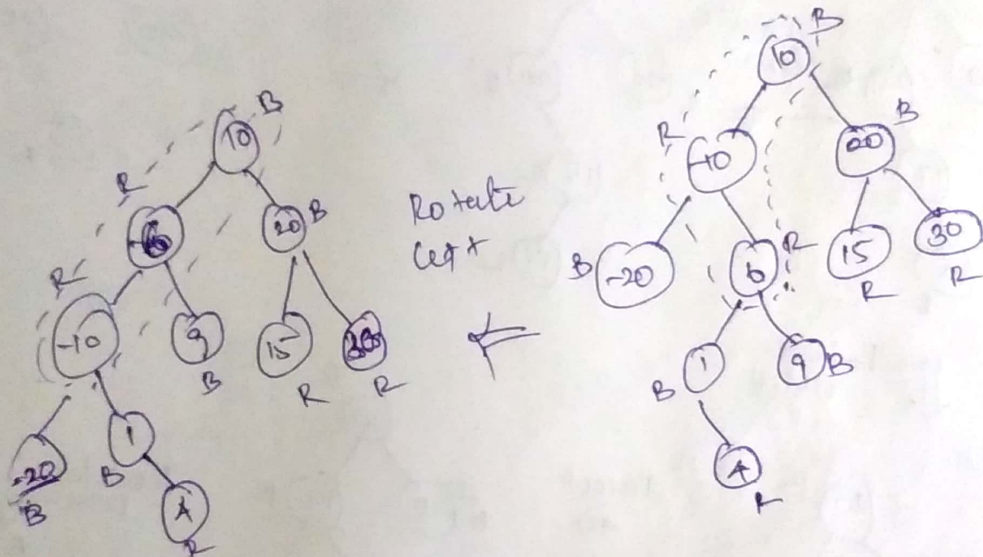 B
10
R
6
20 B
R
-10
9
B
15
R
30
R
-20
B
1
B
4
R
Rotate
Left
B
10
R
-10
B
20
B -20
6
R
15
R
30
R
B 1
9 B
4
R